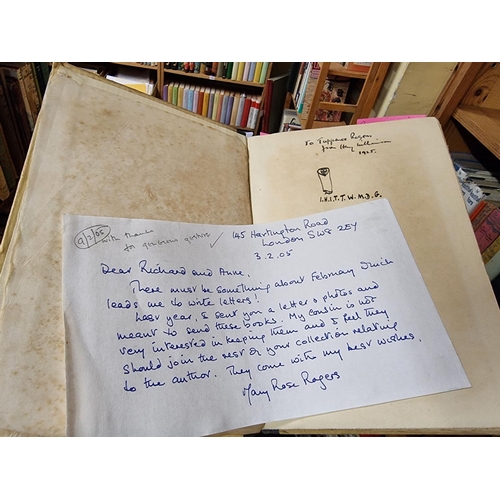 To Tuppence Rogers
from Henry Williamson
1925.
I.H.I.T.T.W.M.D.G.
9/3/05
with thanks
for generous gesture ✓
145 Hartington Road
London SW8 2EY
3.2.05
Dear Richard and Anne,
There must be something about February which
leads me to write letters!
Last year, I sent you a letter & photos and
meant to send these books. My cousin is not
very interested in keeping them and I feel they
should join the rest of your collection relating
to the author. They come with my best wishes,
Mary Rose Rogers